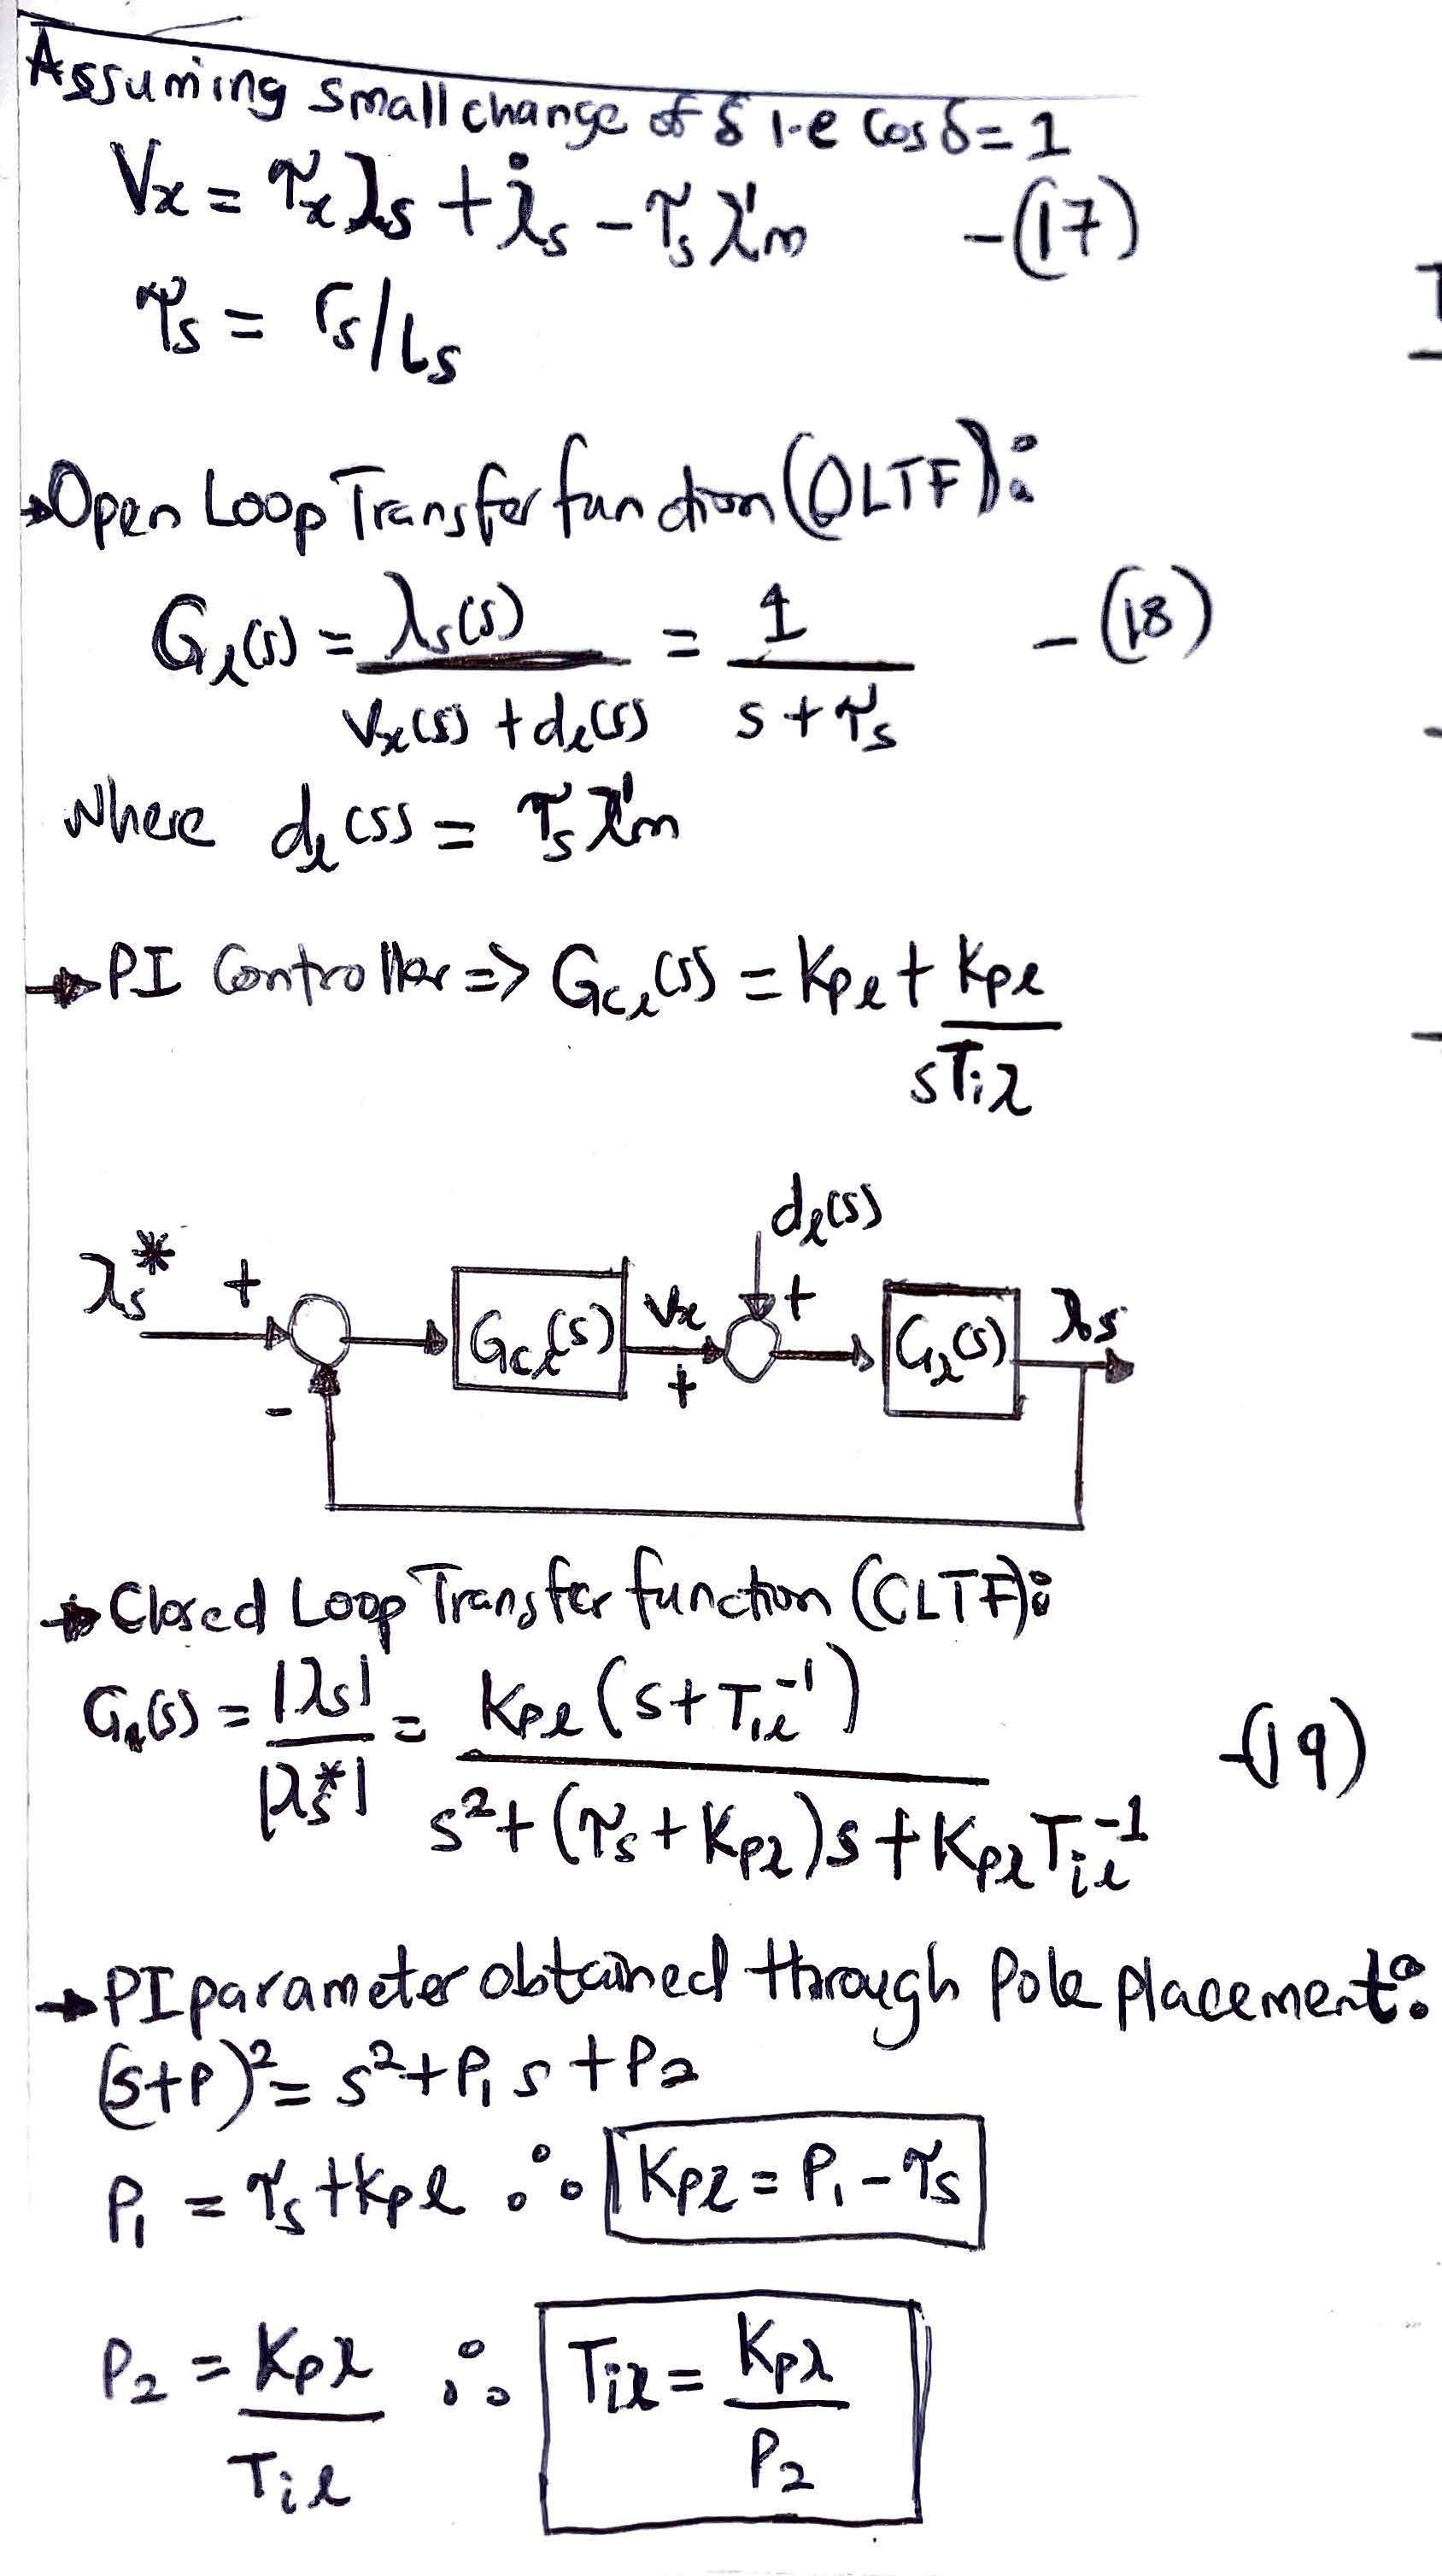 Assuming small change of δ i.e cos δ = 1
Vx = τx λs + λ̇s - τs λ'm -(17)
τs = rs/Ls
→Open Loop Transfer function (OLTF):
Gλ(s) = λs(s) / (Vx(s) + dλ(s)) = 1 / (s + τs) -(18)
where dλ(s) = τs λ'm
→PI Controller => Gcλ(s) = Kpλ + Kpλ / sTiλ
dλ(s)
λs* + Gcλ(s) Vx + Gλ(s) λs
- +
→ Closed Loop Transfer function (CLTF):
Gλ(s) = |λs| / |λs*| = Kpλ (s + Tiλ⁻¹) / (s² + (τs + Kpλ)s + Kpλ Tiλ⁻¹) -(19)
→ PI parameter obtained through Pole placement:
(s+P)² = s² + P₁ s + P₂
P₁ = τs + Kpλ ∴ Kpλ = P₁ - τs
P₂ = Kpλ / Tiλ ∴ Tiλ = Kpλ / P₂